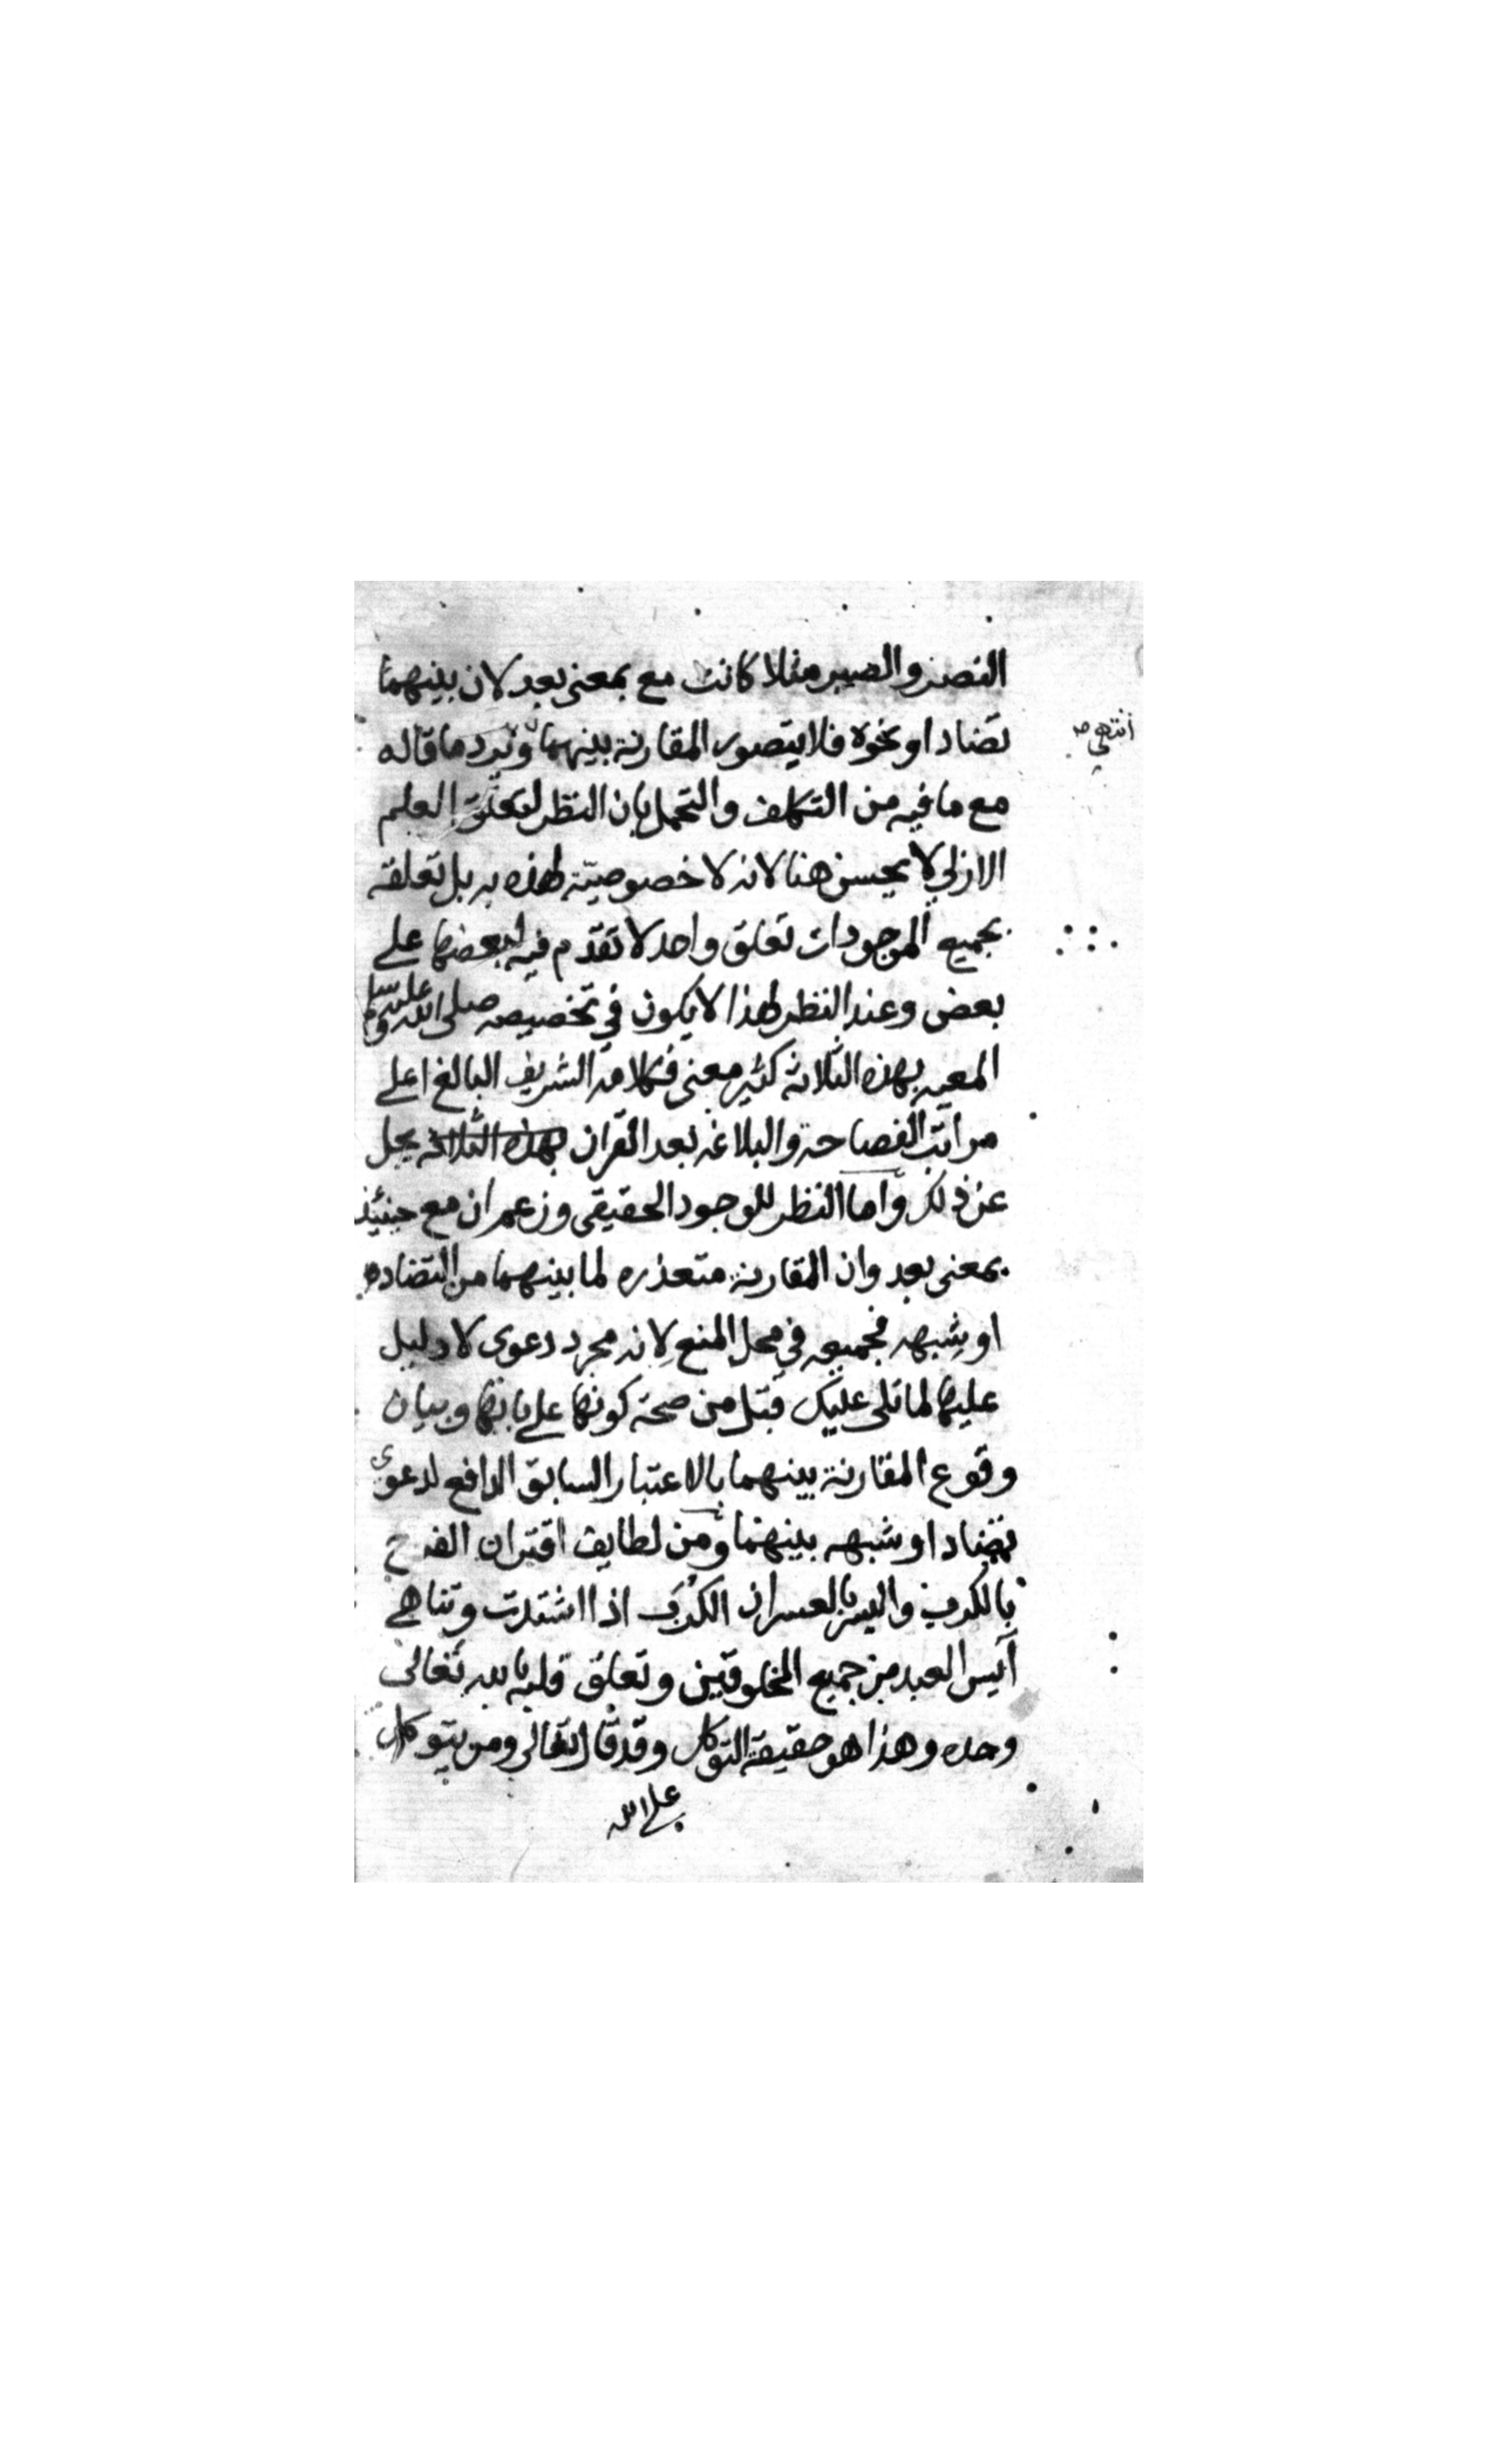 النصر والصبر مثلا كانت مع بمعنى بعد لان بينهما
تضادا او نحوه فلا يتصور المقارنة بينهما ويرد ما قاله
انتهى
مع ما فيه من التكلف والتحمل بان النظر لتعلق العلم
الازلي لا يحسن هنا لانه لا خصوصية لهذه به بل تعلقه
بجميع الموجودات تعلق واحد لا تقدم فيه لبعضها على
بعض وعند النظر لهذا لا يكون في تخصيصه صلى الله عليه وسلم
المعيه بهذه الثلاثة كثير معنى فكلامه الشريف البالغ اعلى
مراتب الفصاحة والبلاغه بعد القران بهذه الثلاثة يجل
عن ذلك واما النظر للوجود الحقيقي وزعم ان مع حينئذ
بمعنى بعد وان المقارنة متعذره لما بينهما من التضاد
او شبهه فجميعه في محل المنع لانه مجرد دعوى لا دليل
عليها لما تلى عليك قبل من صحة كونها على بابها وبيان
وقوع المقارنة بينهما بالاعتبار السابق الدافع لدعوى
تضاد او شبهه بينهما ومن لطايف اقتران الفرج
بالكرب واليسر بالعسر ان الكرب اذا اشتدت وتناهى
آيس العبد من جميع المخلوقين وتعلق قلبه بالله تعالى
وحده وهذا هو حقيقة التوكل وقد قال تعالى ومن يتوكل
على الله